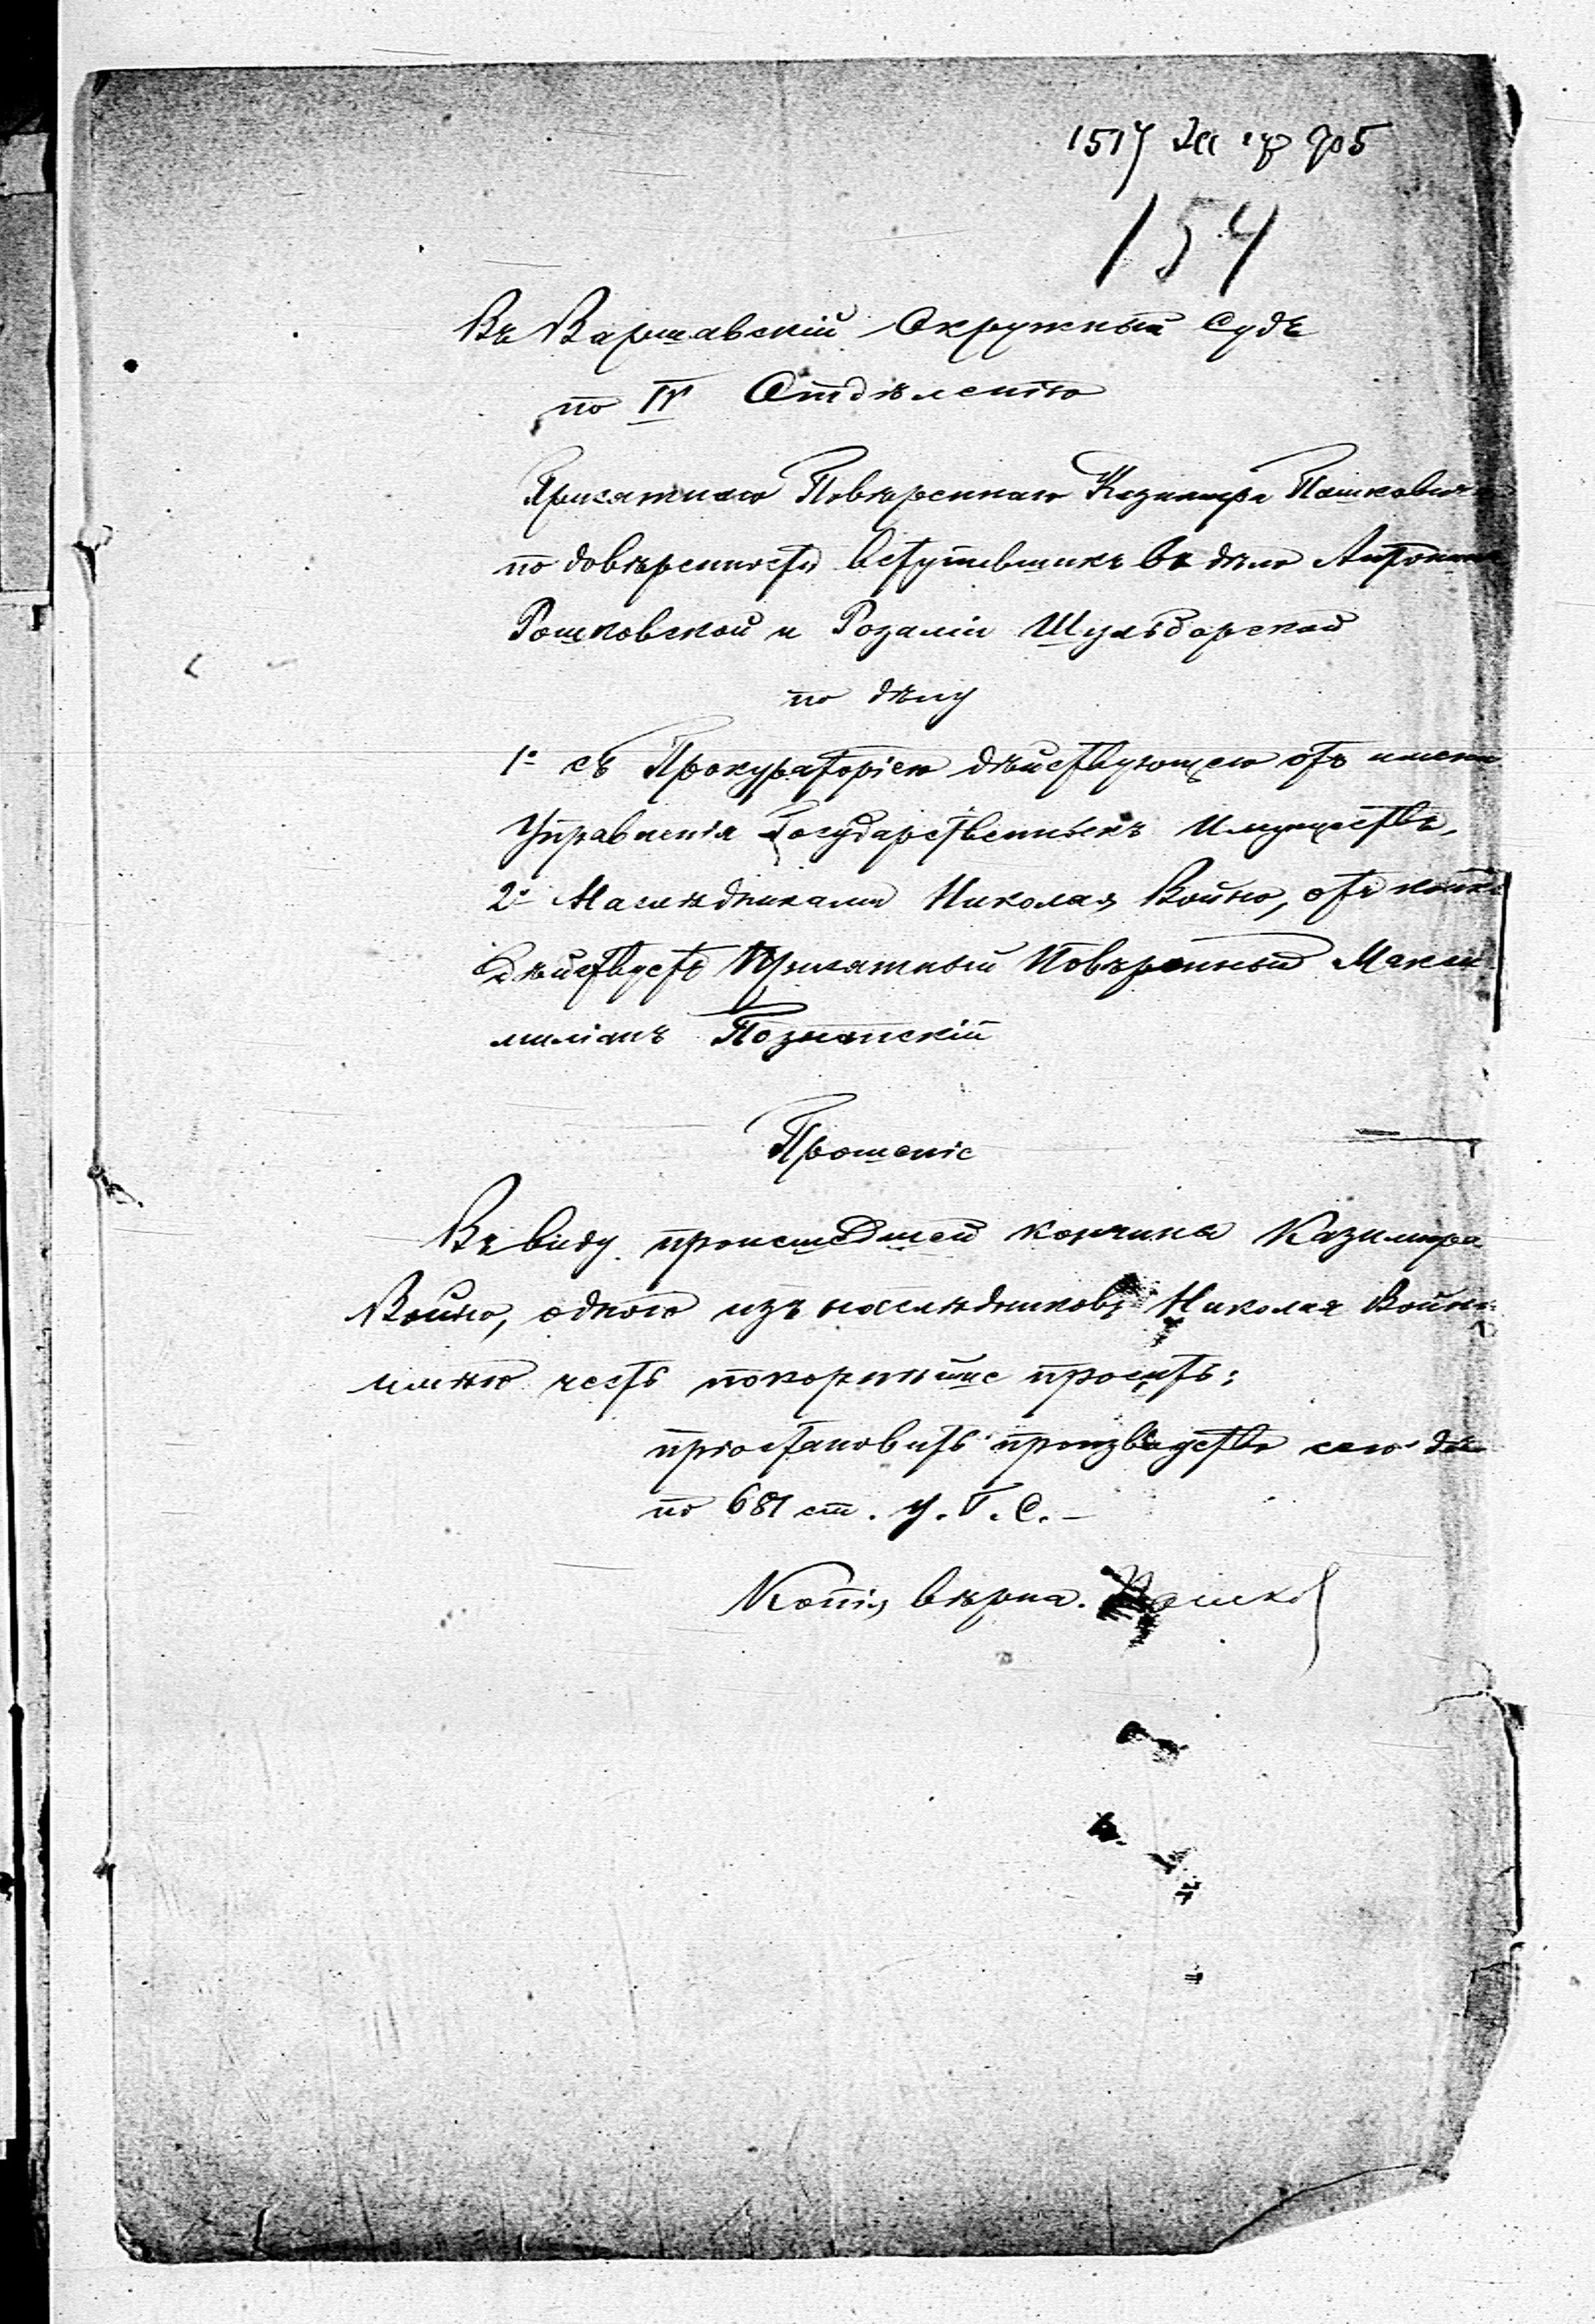 1517
154
Въ Варшавскій Окружный Судъ
по IV Отдѣленію
Присяжнаго Повѣреннаго Казимира Пашковича
по довѣренности вступившихъ въ дѣло Антонины
Рошковской и Розаліи Шульборской
по дѣлу
1º съ Прокураторіею дѣйствующею отъ имени
Управленія Государственныхъ Имуществъ,
2º Наслѣдниками Николая Войно, отъ коихъ
дѣйствуетъ Присяжный Повѣренный Макси
миліанъ Познанскій
Прошеніе
Въ виду происшедшей кончины Казимира
Войно, одного изъ наслѣдниковъ Николая Войно
имѣю честь покорнѣйше просить:
пріостановить производство сего дѣла
по 681 ст. У. Г. С. —
Копія вѣрна.